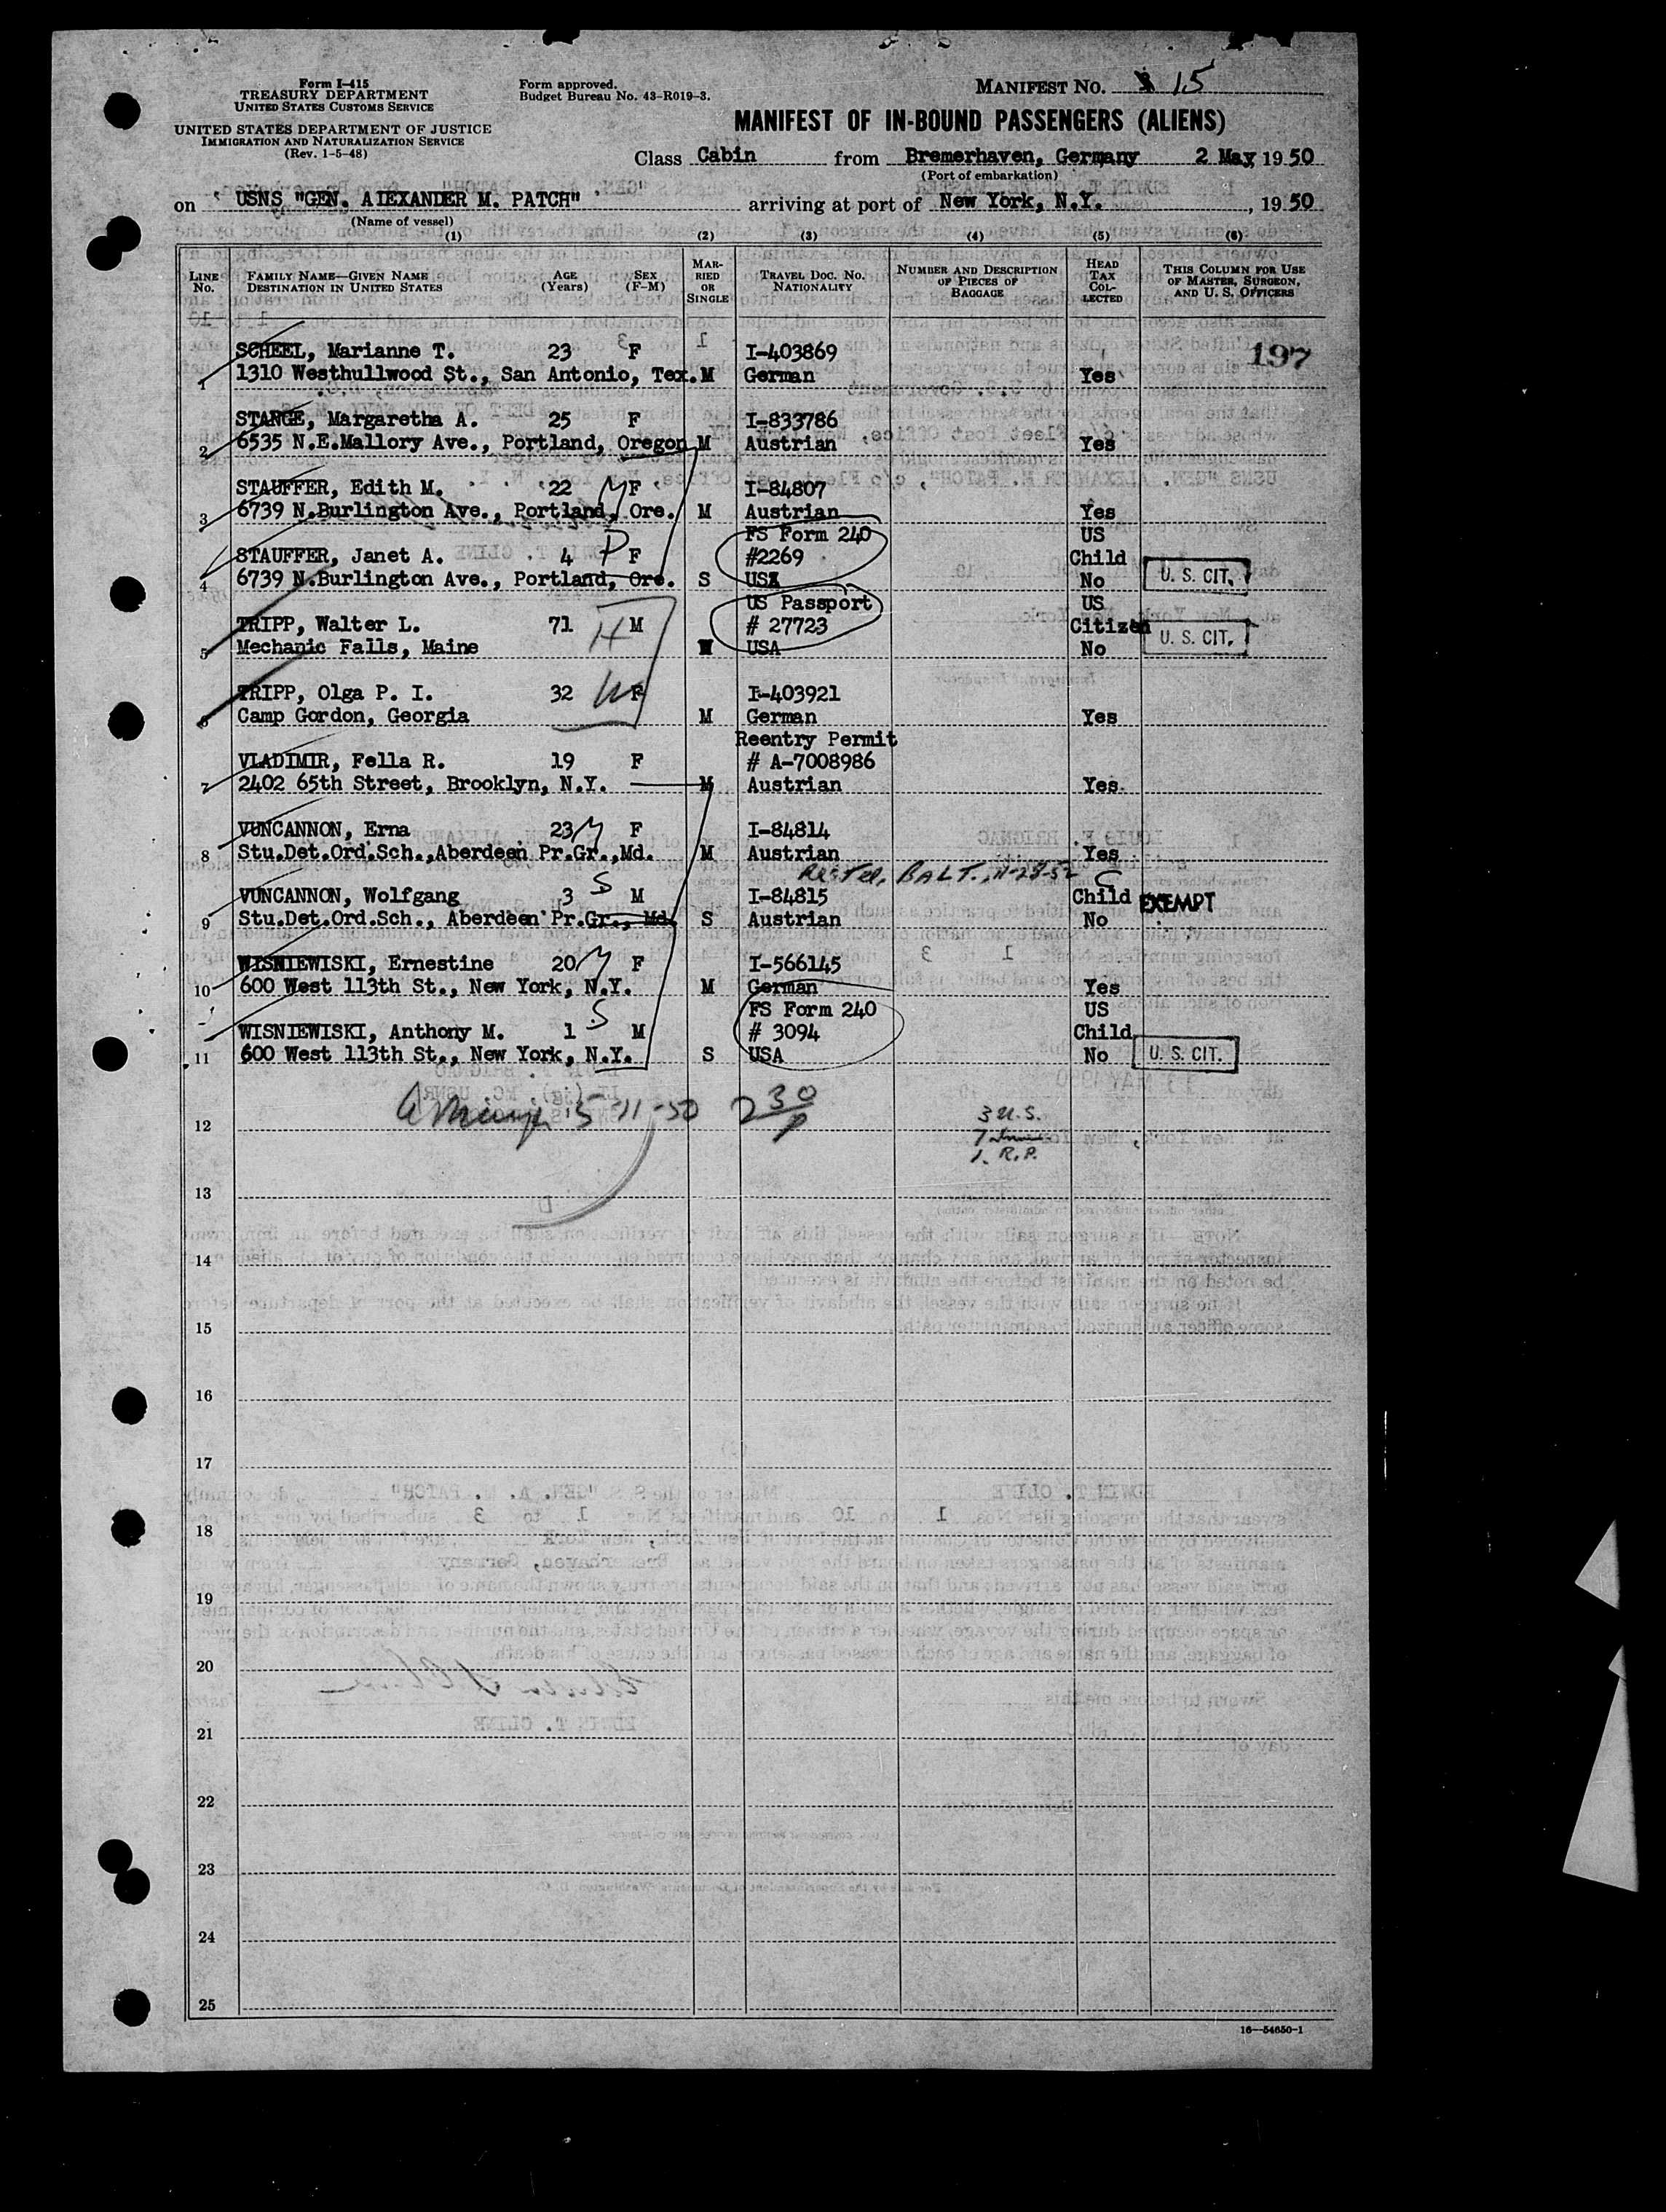 Form I-415
TREASURY DEPARTMENT
UNITED STATES CUSTOMS SERVICE
UNITED STATES DEPARTMENT OF JUSTICE
IMMIGRATION AND NATURALIZATION SERVICE
(Rev. 1-5-48)
Form approved.
Budget Bureau No. 43-R019-3.
MANIFEST NO. 15
MANIFEST OF IN-BOUND PASSENGERS (ALIENS)
Class Cabin from Bremerhaven, Germany 2 May, 1950
(Port of embarkation)
on USNS "GEN. ALEXANDER M. PATCH" arriving at port of New York, N.Y. , 1950
(Name of vessel)
(1) (2) (3) (4) (5) (6)
LINE No. FAMILY NAME—GIVEN NAME DESTINATION IN UNITED STATES AGE (Years) SEX (F-M) MARRIED OR SINGLE TRAVEL DOC. NO. NATIONALITY NUMBER AND DESCRIPTION OF PIECES OF BAGGAGE HEAD TAX COLLECTED THIS COLUMN FOR USE OF MASTER, SURGEON, AND U. S. OFFICERS
SCHEEL, Marianne T. 23 F I-403869 197
1 1310 Westhullwood St., San Antonio, Tex. M German Yes
STANGE, Margaretha A. 25 F I-833786
2 6535 N.E.Mallory Ave., Portland, Oregon M Austrian Yes
STAUFFER, Edith M. 22 M F I-84807
3 6739 N.Burlington Ave., Portland, Ore. M Austrian Yes
FS Form 240 US
STAUFFER, Janet A. 4 F #2269 Child
4 6739 N.Burlington Ave., Portland, Ore. S USA No U. S. CIT.
US Passport US
TRIPP, Walter L. 71 H M # 27723 Citizen
5 Mechanic Falls, Maine USA No U. S. CIT.
TRIPP, Olga P. I. 32 W F I-403921
6 Camp Gordon, Georgia M German Yes
Reentry Permit
VLADIMIR, Fella R. 19 F # A-7008986
7 2402 65th Street, Brooklyn, N.Y. M Austrian Yes
VUNCANNON, Erna 23 M F I-84814
8 Stu.Det.Ord.Sch.,Aberdeen Pr.Gr.,Md. M Austrian Yes
BALT., 11-28-52 C
VUNCANNON, Wolfgang 3 S M I-84815 Child EXEMPT
9 Stu.Det.Ord.Sch., Aberdeen Pr.Gr., Md. S Austrian No
WISNIEWISKI, Ernestine 20 M F I-566145
10 600 West 113th St., New York, N.Y. M German Yes
FS Form 240 US
WISNIEWISKI, Anthony M. 1 S M # 3094 Child
11 600 West 113th St., New York, N.Y. S USA No U. S. CIT.
5-11-50 2 30 P
3 U.S.
12
7
1. R.P.
13
14
15
16
17
18
19
20
21
22
23
24
25
16—54650-1